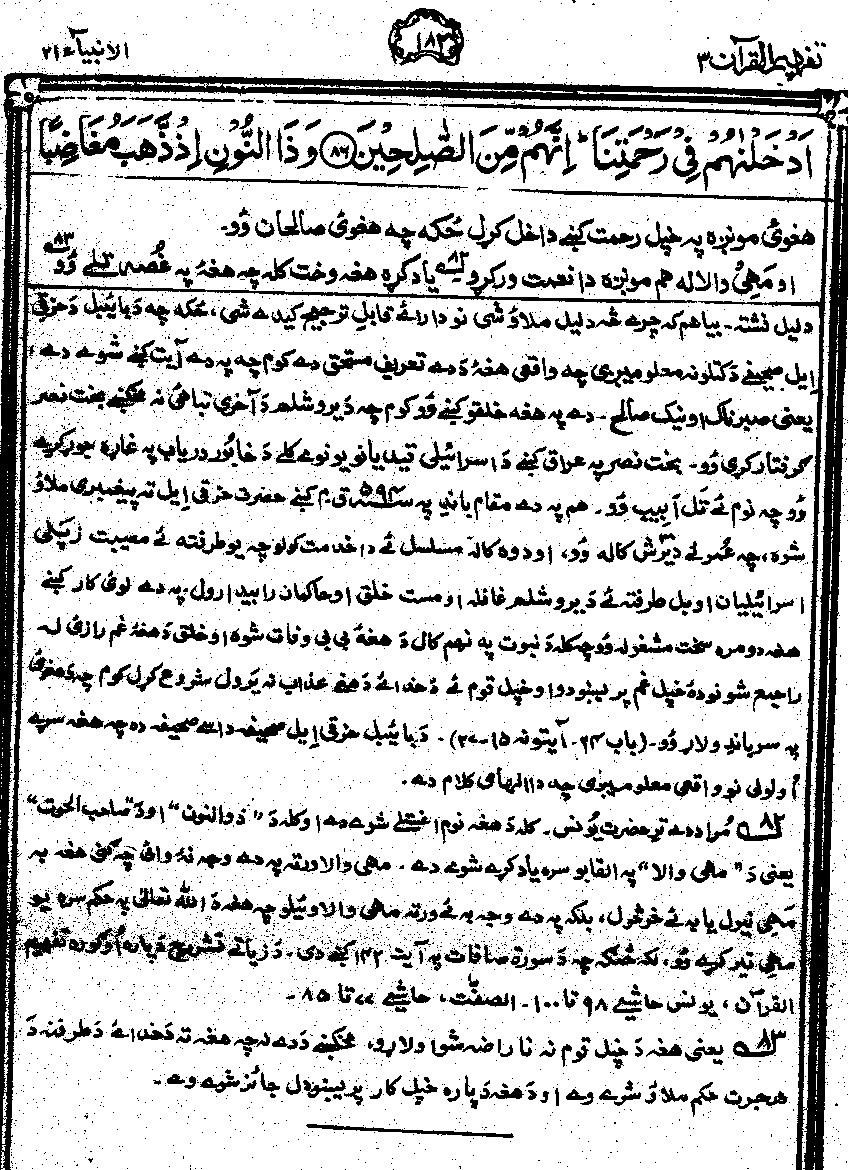 تفهیم القرآن ۳
۱۸۳
الانبیآء ۲۱
اَدْخَلْنٰهُمْ فِیْ رَحْمَتِنَا ؕ اِنَّهُمْ مِّنَ الصّٰلِحِیْنَ ﴿۸۶﴾ وَ ذَا النُّوْنِ اِذْ ذَّهَبَ مُغَاضِبًا
هغوئ مونږه په خپل رحمت کښے داخل کړل ځکه چه هغوئ صالحان وُو۔
او مَهئ والا له هم مونږه دا نعمت ورکړو ۸۲ یاد کړه هغه وخت کله چه هغهٔ په غُصه تلے وُو ۸۳
دلیل نشته۔ بیا هم که چرے څه دلیل ملاؤ شی نو دا رائے قابلِ ترجیح کیدے شی، ځکه چه دَ بائیبل دَ حزقی
اِیل صحیفے دَ کتلو نه معلومیږی چه واقعی هغهٔ دَ دے تعریف مستحق دے کوم چه په دے آیت کښے شوے دے،
یعنی صبرناک او نیک صالح۔ دے په هغه خلقو کښے وُو کوم چه دَ یروشلم دَ آخری تباهئ نه مخکښے بخت نصر
گرفتار کړی وُو۔ بخت نصر په عراق کښے دَ اسرائیلی قیدیانو یو نوے کلے دَ خابُور دریاب په غاړه جوړ کړے
وُو چه نوم ئے تَل اَبیب وُو۔ هم په دے مقام باندے په ۵۹۴ ق م کښے حضرت حزقی اِیل ته پیغمبری ملاؤ
شوه، چه عُمر ئے دیرش کاله وُو، او دوه کاله مسلسل ئے دا خدمت کولو چه یو طرفته ئے مصیبت زپلی
اسرائیلیان او بل طرفته ئے دَ یروشلم غافله او مست خلق او حاکمان رابیدارول په دے لوئ کار کښے
هغه دومره سخت مشغوله وُو چه کله دَ نبوت په نهم کال دَ هغهٔ بی بی وفات شوه او خلق دَ هغهٔ غم رازئ له
راجمع شو نو دهٔ خپل غم پریښودو او خپل قوم ئے دَ خدائے دَ هغے عذاب نه یَرول شروع کړل کوم چه دَ هغوئ
په سر باندے ولاړ وُو۔ (باب ۲۴۔ آیتونه ۱۵۔۲۷)۔ دَ بائیبل حزقی اِیل صحیفه داسے صحیفه ده چه هغه سړے
اولولی نو واقعی معلومیږی چه دا الهامی کلام دے۔
۸۲ مُراد دے ترِ حضرت یُونس۔ کله دَ هغه نوم اغستلے شوے دے او کله دَ "ذوالنون" او دَ "صاحب الحوت"
یعنی دَ "ماهی والا" په القابو سره یاد کړے شوے دے۔ ماهی والا ورته په دے وجه نهٔ وائی چه ګنی هغه به
مَهی نیول یا به ئے خرڅول، بلکه په دے وجه به ئے ورته ماهی والا وئیلو چه هغه دَ الله تعالیٰ په حکم سره یو
ماهی تیر کړے وُو، لکه څنګه چه دَ سورة صافات په آیت ۱۴۲ کښے دی۔ دَ زیاتے تشریح دَپاره اُوګوره تفهیم
القرآن، یونس حاشیے ۹۸ تا ۱۰۰۔ الصفّٰت، حاشیے ۷۷ تا ۸۵۔
۸۳ یعنی هغه دَ خپل قوم نه ناراضه شو او لاړو، مخکښے دَ دے نه چه هغه ته دَ خدائے دَ طرفنه دَ
هجرت حکم ملاؤ شوے وے او دَ هغه دَپاره خپل کار پریښودل جائز شوے وے۔